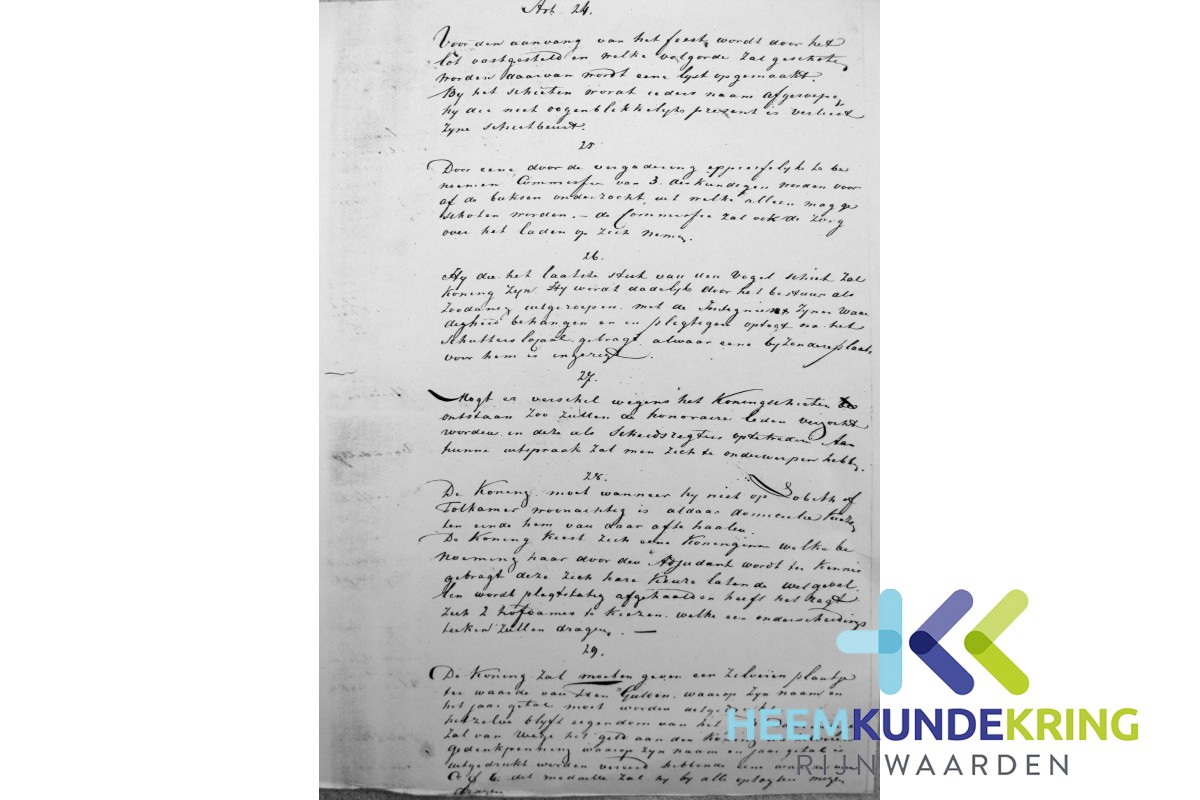 Art. 24.
Voor den aanvang van het feest, wordt door het
lot vastgesteld en welke volgorde zal geschoten
worden daarvan wordt eene lyst opgemaakt.
By het schieten wordt ieders naam afgeroepen,
hy die niet oogenblikkelyk present is verliest
zyne schietbeurt.
25
Door eene door de vergadering oppresselyk te be
noemen Commissie van 3. deskundigen worden voor
af de buksen onderzocht, uit welke alleen mag ge
schoten worden. – de Commissie zal ook de zorg
over het laden op zich nemen.
26.
Hy die het laatste stuk van den Vogel schiet zal
Koning zyn Hy wordt dadelyk door het bestuur als
zoodanig uitgeroepen. met de Insignien zyner waar
digheid behangen en in plegtigen optogt na het
Schutters lokaal gebragt, alwaar eene byzondere plaats
voor hem is ingerigt.
27.
Mogt er verschil wegens het Koningschieten
ontstaan zoo zullen de honoraire leden verzocht
worden in deze als Scheidsregters optetreden Aan
hunne uitspraak zal men zich te onderwerpen hebben.
28.
De Koning moet wanneer hy niet op Lobith of
Tolkamer woonachtig is aldaar domicilie kiezen
ten einde hem van daar afte haalen.
De Koning kiest zich eene Koningin welke be
noeming haar door den Adjudant wordt ter kennis
gebragt deze zich hare keuze latende welgeval
len wordt plegtstatig afgehaald en heeft het regt
zich 2 hofdames te kiezen. welke een onderscheidings
teeken zullen dragen. —
29.
De Koning zal moeten geven een zilveren plaatje
ter waarde van Gulden, waarop zyn naam en
het jaar getal moet worden
hetzelve blyft eigendom van het
zal van wege het geld aan den Koning een
gedenkpenning waarop zyn naam en jaar getal is
uitgedrukt worden vereerd hebbende eene waarde van
6. dit medaille zal hy by alle optogten mogen
dragen
HEEMKUNDEKRING
RIJNWAARDEN